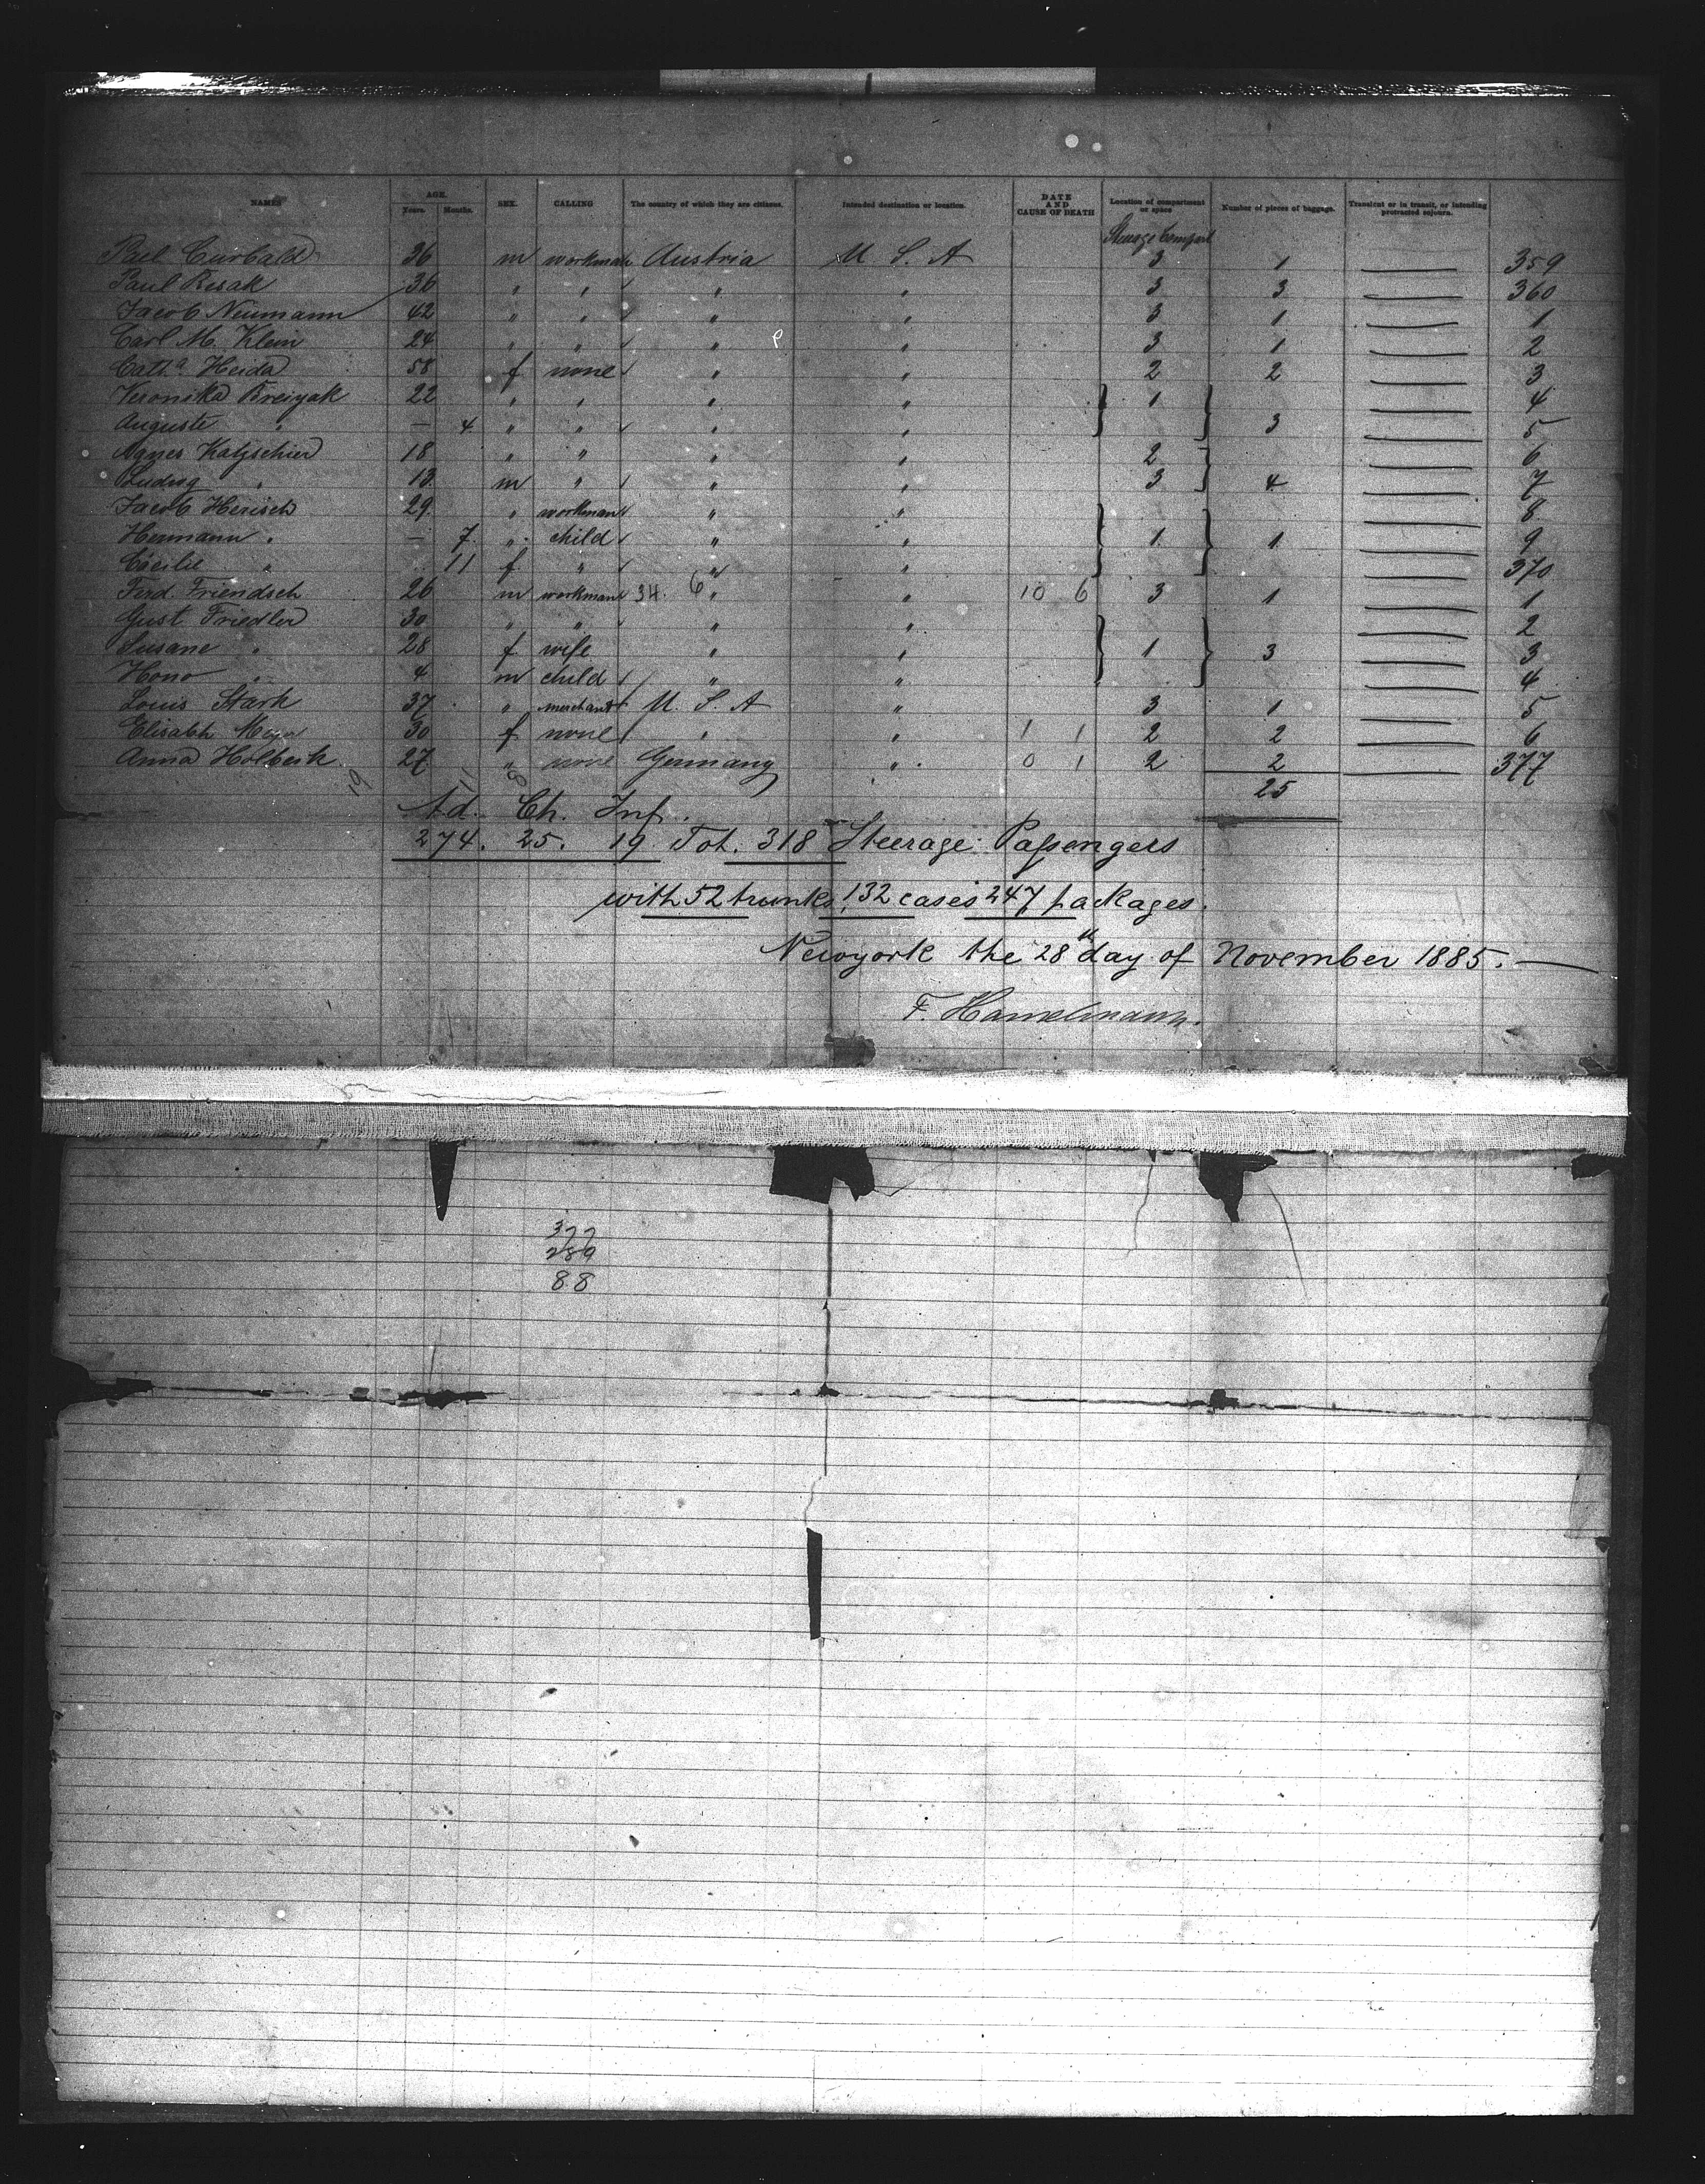 NAMES AGE. Years. Months. SEX. CALLING The country of which they are citizens. Intended destination or location. DATE AND CAUSE OF DEATH Location of compartment or space Number of pieces of baggage. Transient or in transit, or intending protracted sojourn.
Steerage Compart
Paul 36 m workman Austria U. S. A 3 1 — 359
Paul Resak 36 " " " " 3 3 — 360
Jacob Neumann 42 " " " " 3 1 — 1
Carl M. Klein 24 " " " " 3 1 — 2
Cath.a Heida 58 f none " " 2 2 — 3
Veronika 22 " " " " 1 — 4
Auguste " — 4 " " " " 3 — 5
Agnes Katzschier 18 " " " " 2 — 6
Ludwig " 13 m " " " 3 4 — 7
Jacob Herisch 29 " workman " " — 8
Hermann " — 7 " child " " 1 1 — 9
Cäcilie " 11 f " " " — 370
Ferd. Friendsch 26 m workman 34. 6 " " 10 6 3 1 — 1
Gust Friedler 30 " " " " — 2
Susane " 28 f wife " " 1 3 — 3
Hono " 4 m child " " — 4
Louis Stark 37 " merchant U. S. A " 3 1 — 5
Elisabh 30 f none " " 1 1 2 2 — 6
Anna Holbeck 27 " none Germany " 0 1 2 2 — 377
19 11 8 25
Ad. Ch. Inf.
274. 25. 19 Tot. 318 Steerage Passengers
with 52 trunks, 132 cases 247 packages.
Newyork the 28th day of November 1885. —
F. Hamelmann.
377
289
88